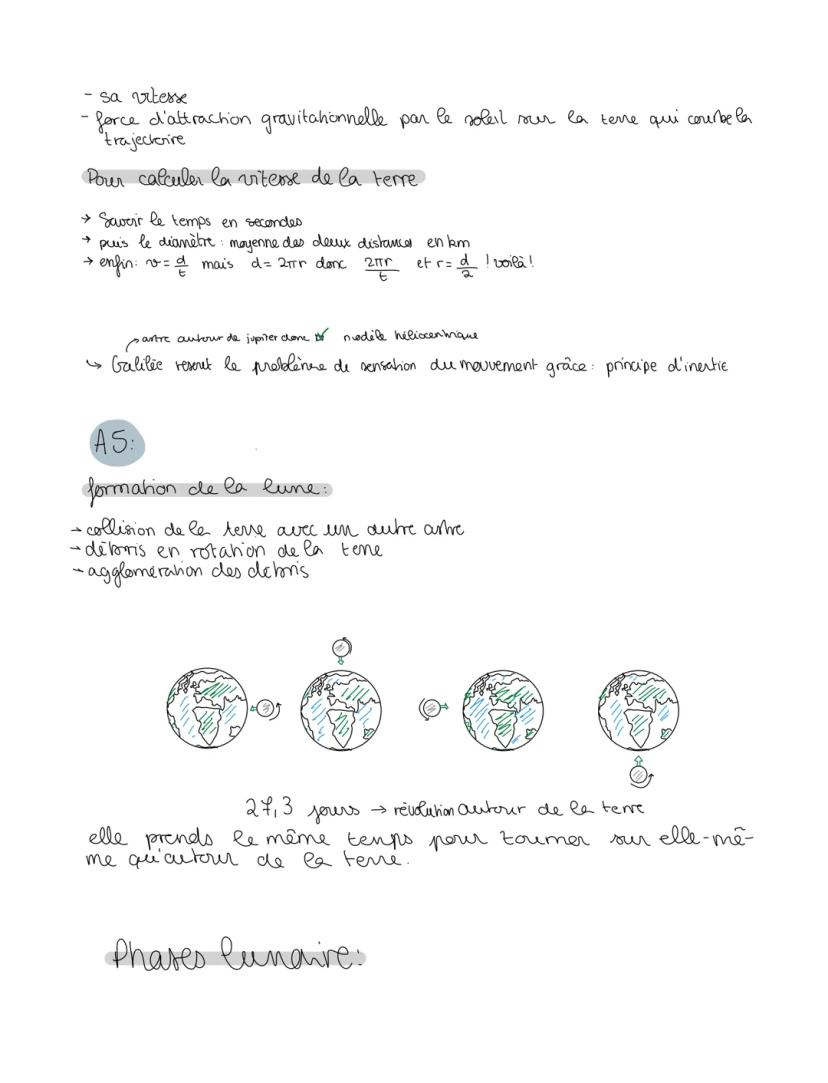 - sa vitesse
- force d'attraction gravitationnelle par le soleil sur la terre qui courbe la
trajectoire
Pour calculer la vitesse de la terre
→ Savoir le temps en secondes
→ puis le diamètre : moyenne des deux distances en km
→ enfin: v = d/t mais d = 2πr donc 2πr/t et r = d/2 ! voilà !
astre autour de jupiter donc modèle héliocentrique
↳ Galilée resout le problème de sensation du mouvement grâce : principe d'inertie
A5:
formation de la lune :
→ collision de la terre avec un autre astre
→ débris en rotation de la terre
→ agglomeration des debris
27,3 jours → révolution autour de la terre
elle prends le même temps pour tourner sur elle-mê-
me qu'autour de la terre.
Phases lunaire: